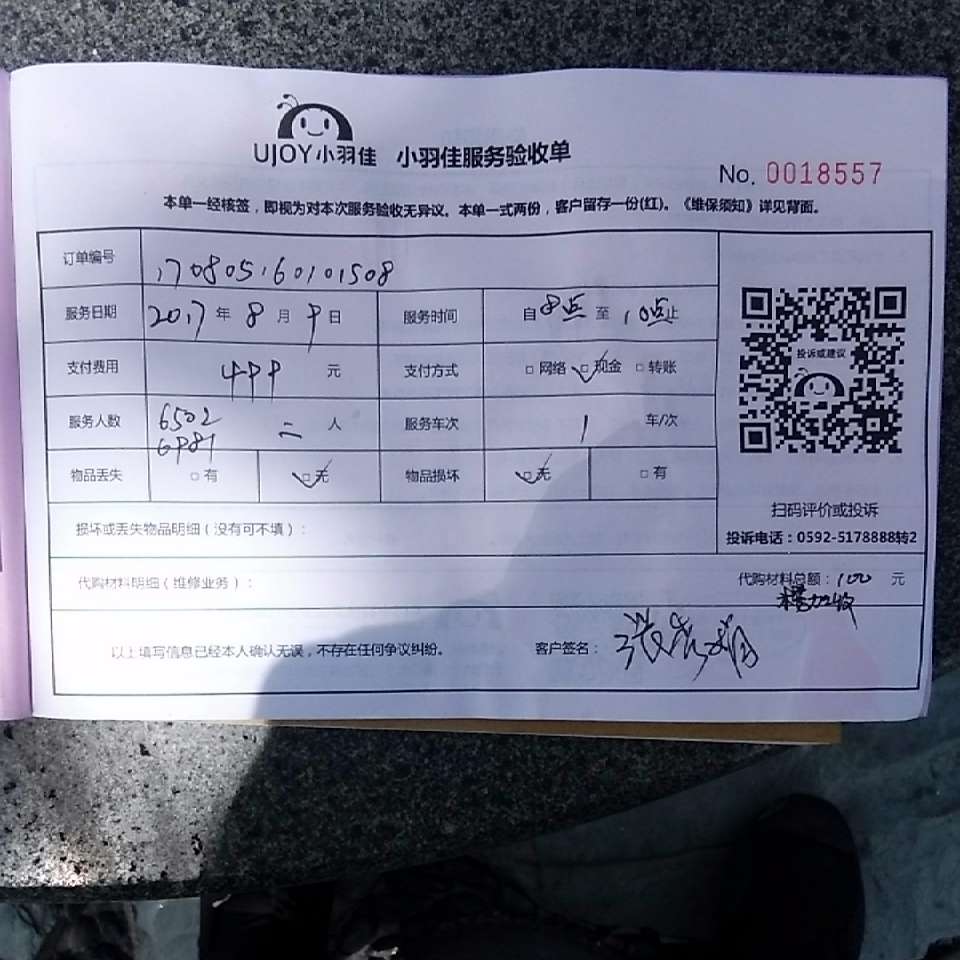 UJOY小羽佳 小羽佳服务验收单
No. 0018557
本单一经核签，即视为对本次服务验收无异议。本单一式两份，客户留存一份(红)。《维保须知》详见背面。
订单编号 170805160101508
服务日期 2017年8月9日 服务时间 自8点至10点止
支付费用 499 元 支付方式 □网络 ☑现金 □转账
投诉或建议
服务人数 6502 6981 二 人 服务车次 1 车/次
物品丢失 □有 ☑无 物品损坏 ☑无 □有
扫码评价或投诉
损坏或丢失物品明细（没有可不填）：
投诉电话：0592-5178888转2
代购材料明细（维修业务）： 代购材料总额：100 元
楼加收
以上填写信息已经本人确认无误，不存在任何争议纠纷。 客户签名：张